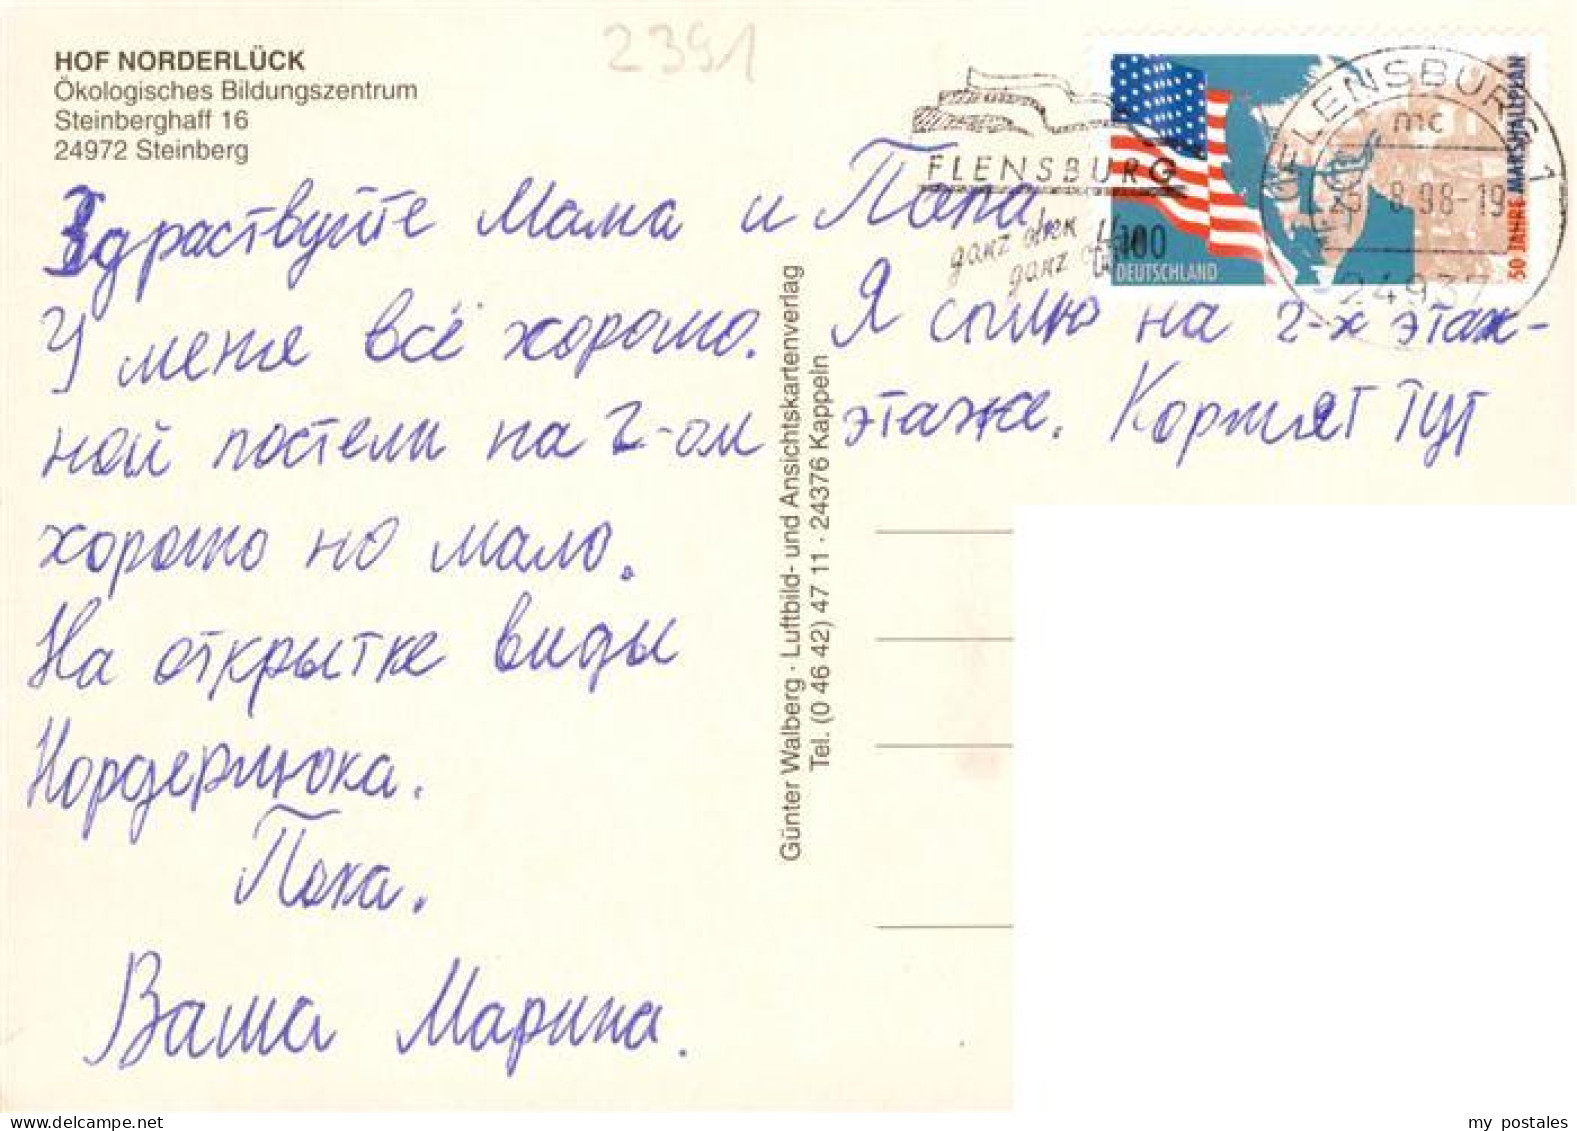 2391
HOF NORDERLÜCK
Ökologisches Bildungszentrum
Steinberghaff 16
24972 Steinberg
FLENSBURG
ganz oben
ganz
FLENSBURG 1
mc
8.98-19
24937
100
DEUTSCHLAND
50 JAHRE MARSHALLPLAN
Здраствуйте Мама и Папа
У меня всё хорошо. Я сплю на 2-х этаж-
ной постели на 2-ом этаже. Кормят тут
хорошо но мало.
На открытке виды
Нордерлюка.
Пока.
Ваша Марина.
Günter Walberg · Luftbild- und Ansichtskartenverlag
Tel. (0 46 42) 47 11 · 24376 Kappeln
my postales